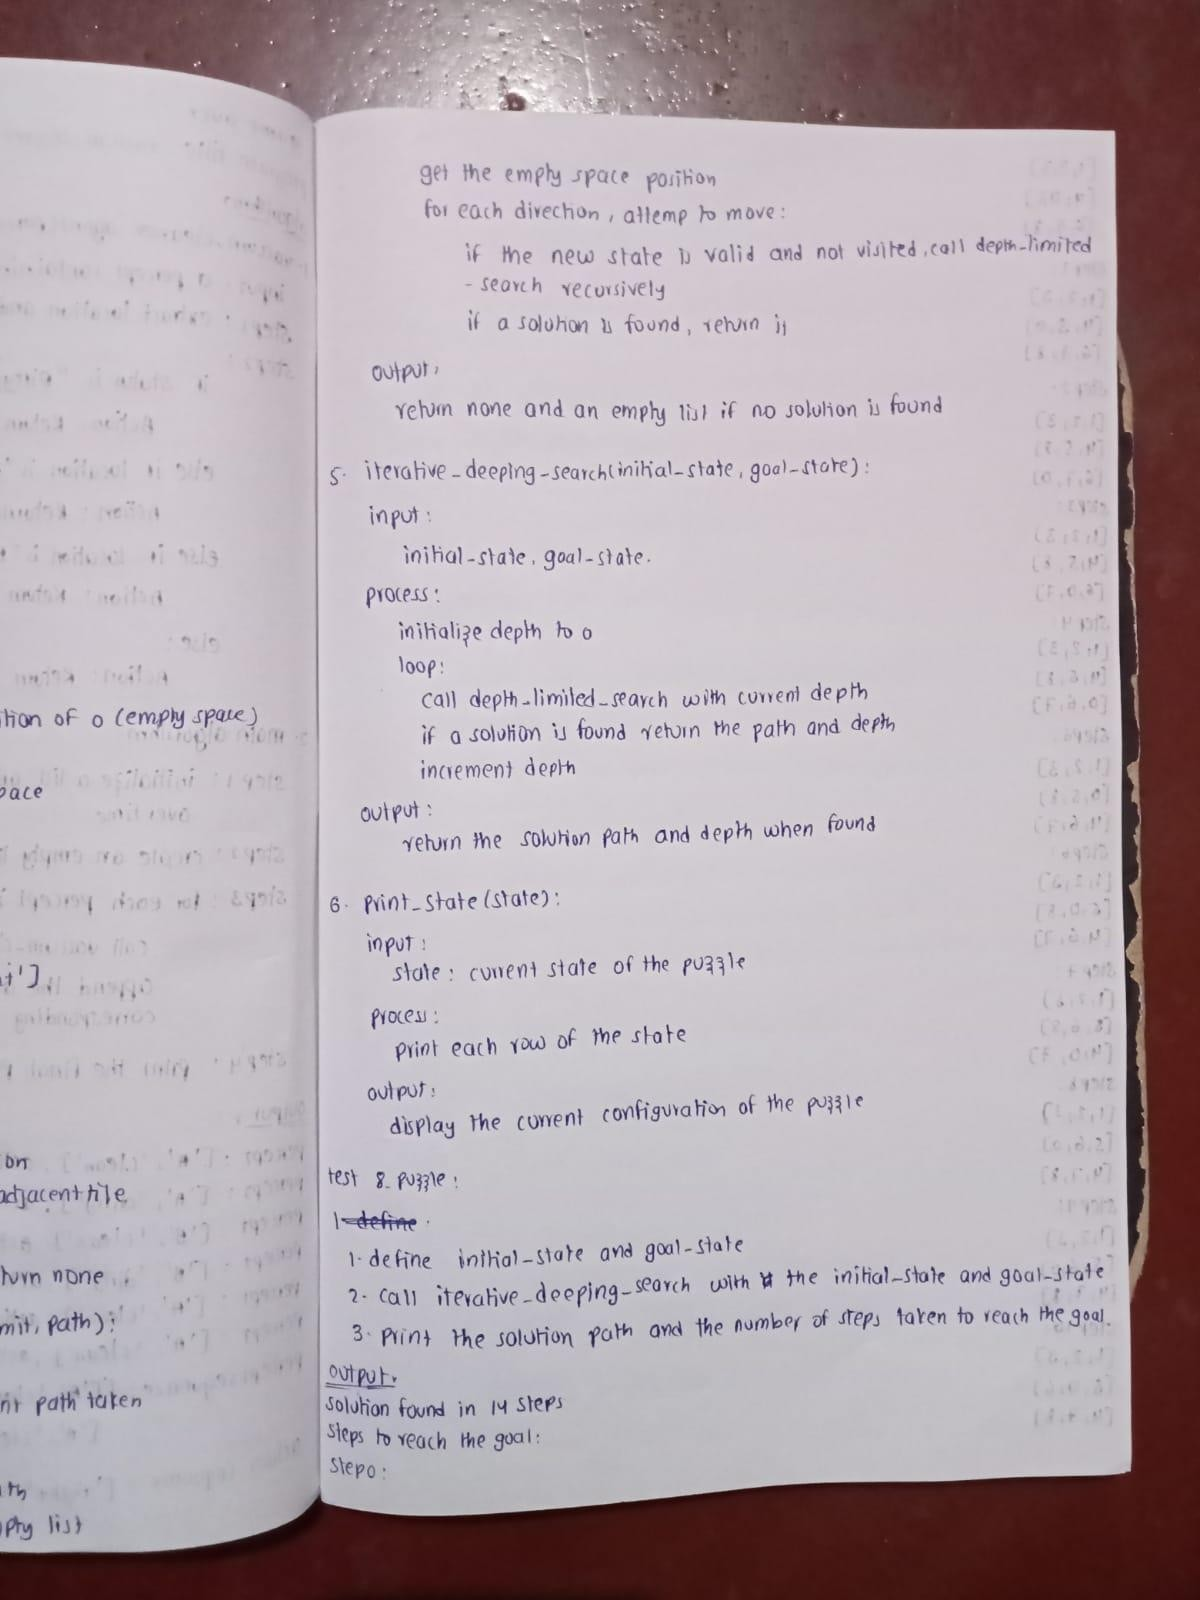 tion of 0 (empty space)
pace
nt']
on
adjacent tile
turn none
mit, path):
nt path taken
ath
pty list
get the empty space position
for each direction, attemp to move:
if the new state is valid and not visited, call depth-limited
- search recursively
if a solution is found, return it
output:
return none and an empty list if no solution is found
5. iterative_deeping-search(initial-state, goal-state):
input:
initial-state, goal-state.
process:
initialize depth to 0
loop:
call depth-limited_search with current depth
if a solution is found return the path and depth
increment depth
output:
return the solution path and depth when found
6. print_state(state):
input:
state: current state of the puzzle
process:
print each row of the state
output:
display the current configuration of the puzzle
test 8_puzzle:
1 define
1. define initial-state and goal-state
2. call iterative_deeping_search with the initial-state and goal-state
3. print the solution path and the number of steps taken to reach the goal.
output.
solution found in 14 steps
steps to reach the goal:
step0: